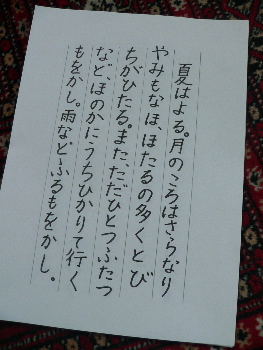 夏はよる。月のころはさらなり
やみもなほ、ほたるの多くとび
ちがひたる。また、ただひとつふたつ
など、ほのかにうちひかりて行く
もをかし。雨などふるもをかし。